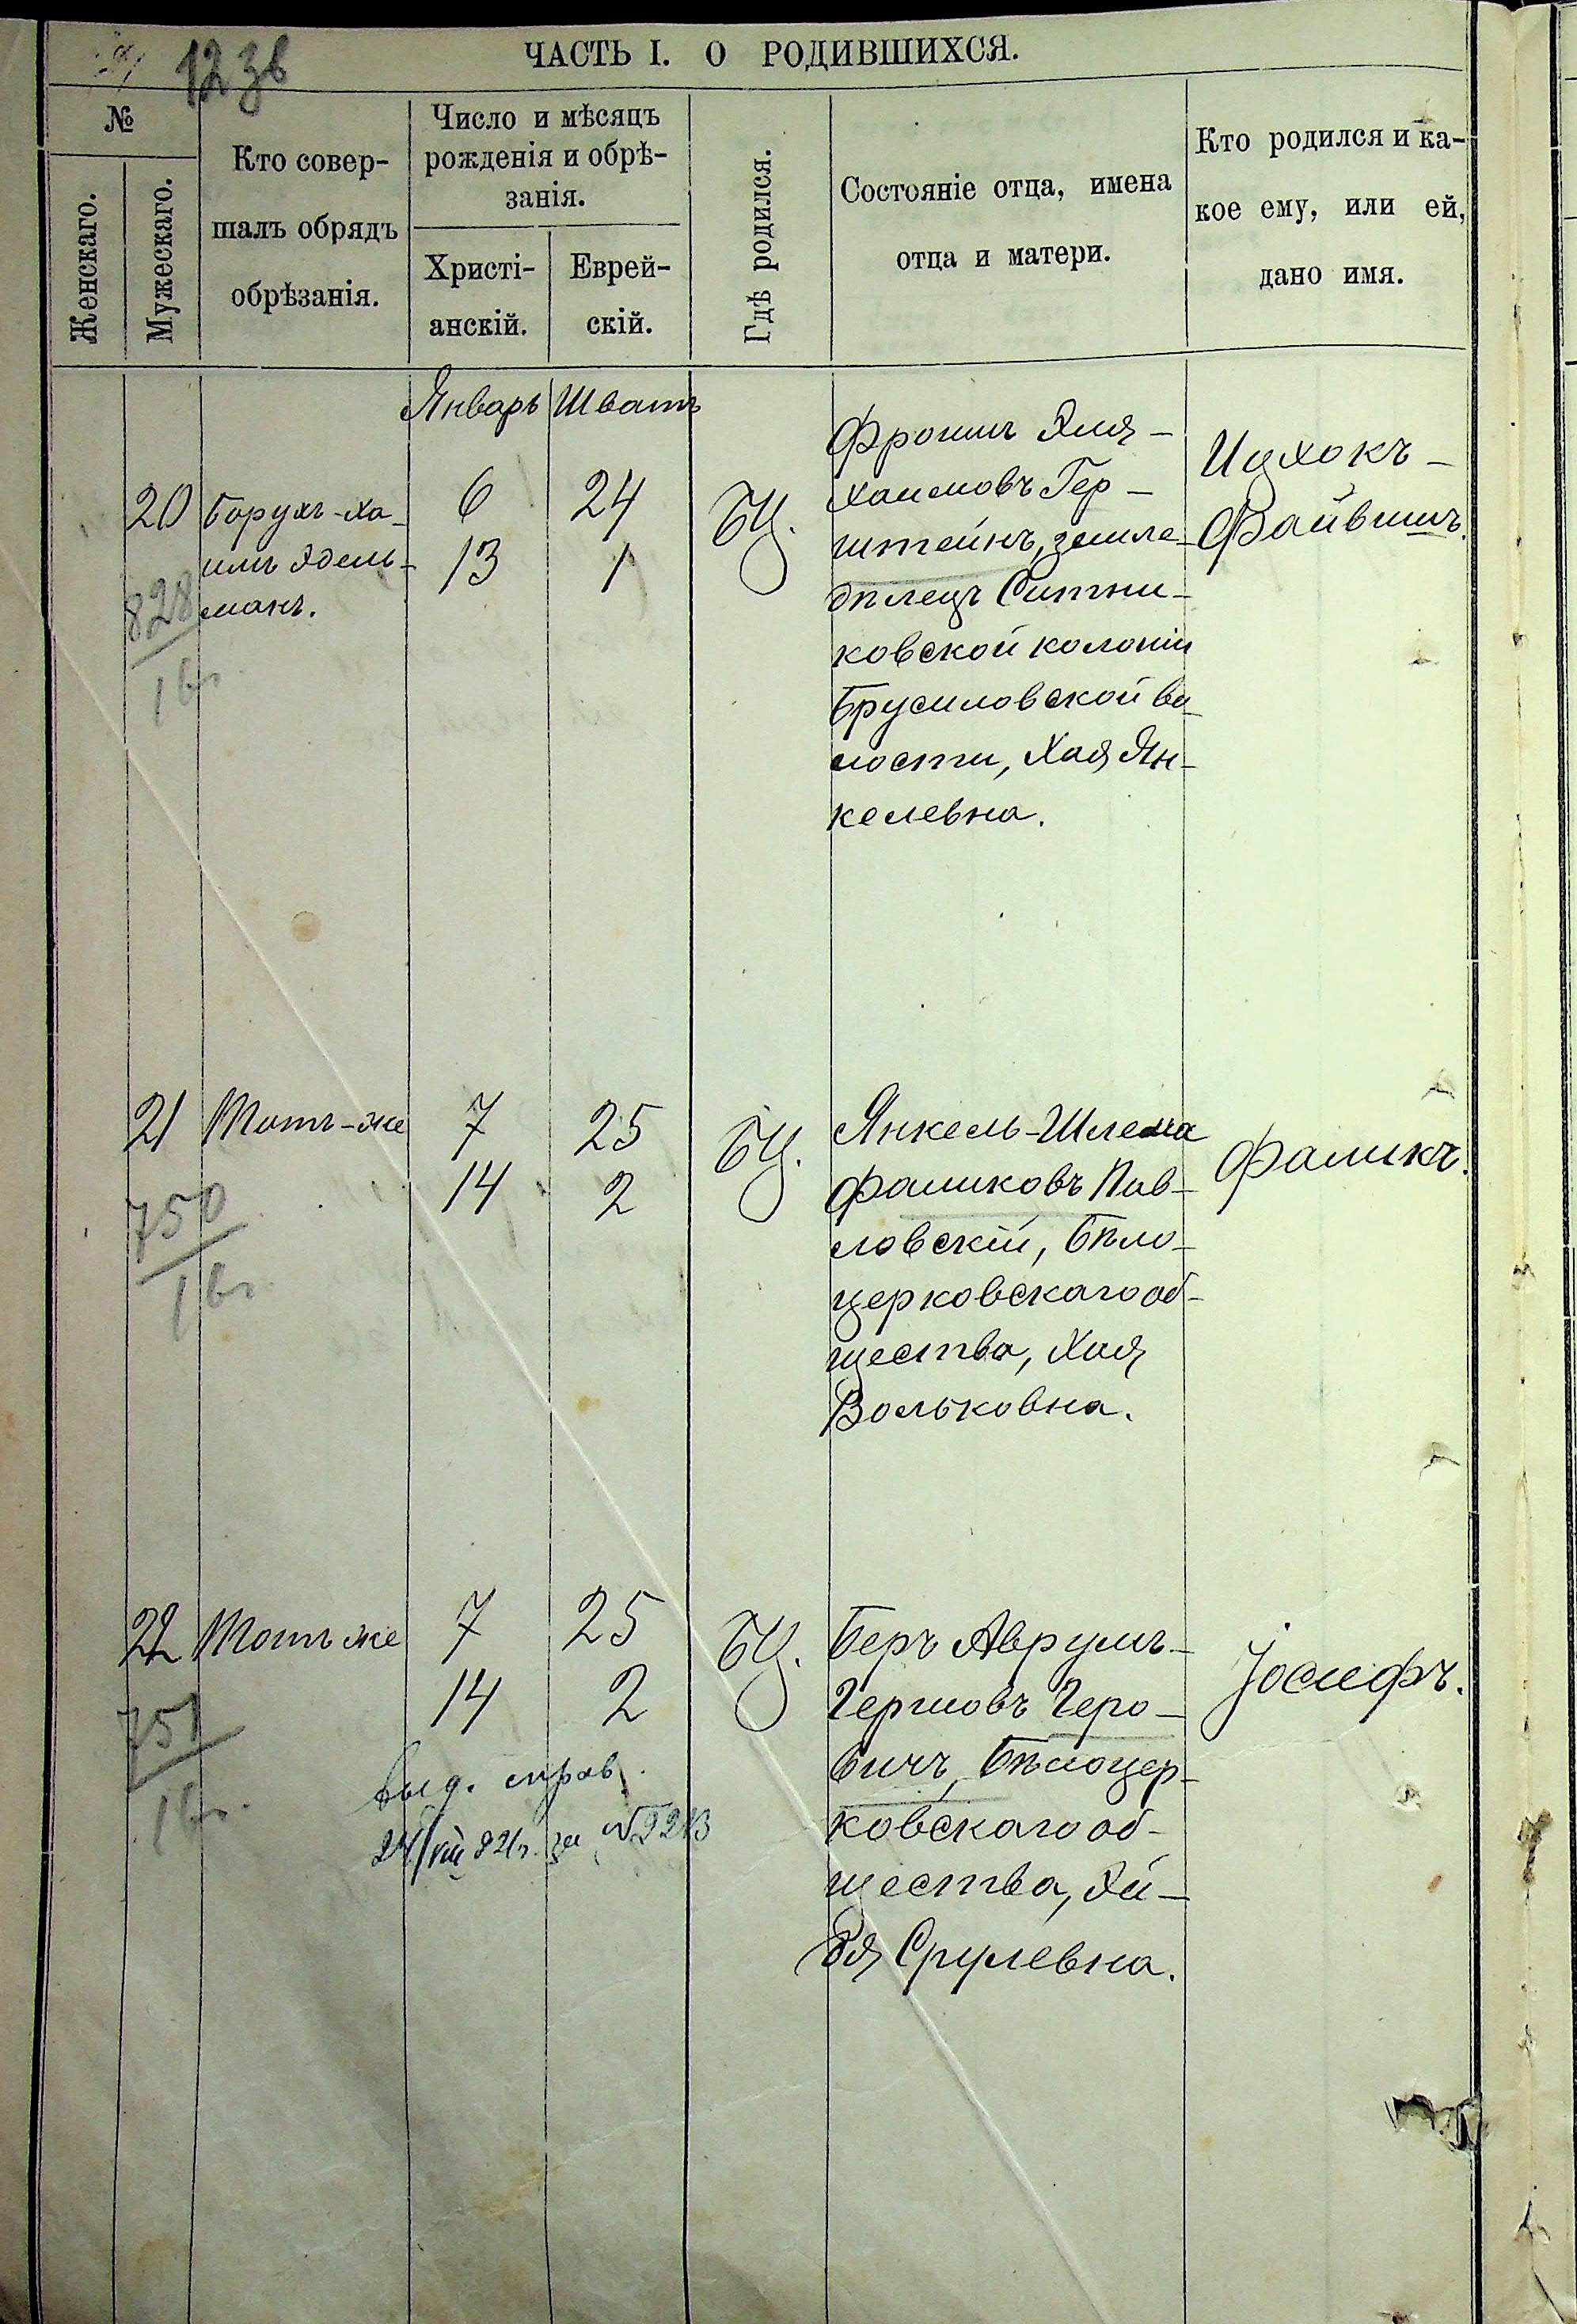 12 зв
ЧАСТЬ I. О РОДИВШИХСЯ.
№
Женскаго.
Мужескаго.
Кто совер-
шалъ обрядъ
обрѣзанія.
Число и мѣсяцъ
рожденія и обрѣ-
занія.
Христі-
анскій.
Еврей-
скій.
Гдѣ родился.
Состояніе отца, имена
отца и матери.
Кто родился и ка-
кое ему, или ей,
дано имя.
Январь Шватъ
20
828
16г.
Борухъ-Ха-
имъ Эдель-
манъ.
6 24
13 1
БЦ.
Фроимъ Эля-
Хаимовъ Гер-
штейнъ, земле-
дѣлецъ Ситни-
ковской колоніи
Брусиловской во-
лости, Хая Ян-
келевна.
Ицхокъ-
Файвишъ.
21
750
16г.
Тотъ-же
7 25
14 2
БЦ.
Янкель-Шлема
Фаликовъ Пав-
ловскій, Бѣло-
церковскаго об-
щества, Хая
Вольковна.
Фаликъ.
22
751
16г.
Тотъ же
7 25
14 2
выд. справ.
24/VIII 21г. за №2213
БЦ.
Беръ Аврумъ-
Гершовъ Геро-
вичъ, Бѣлоцер-
ковскаго об-
щества, Эй-
дя Срулевна.
Іосифъ.